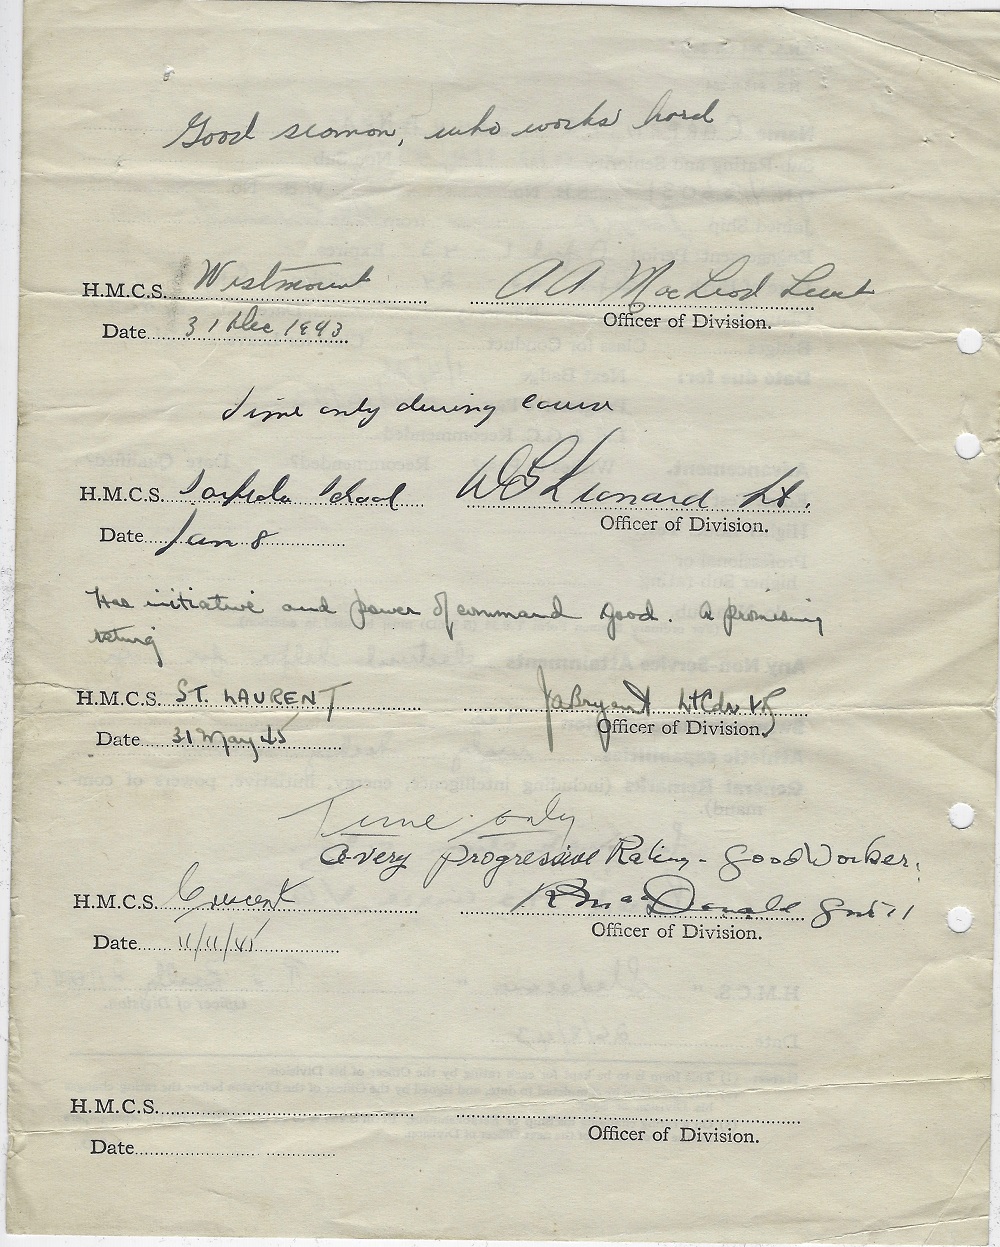 Good seaman, who works hard
H.M.C.S. Westmount A A MacLeod Lieut
Date 31 Dec 1943 Officer of Division.
Time only during course
H.M.C.S. Torpedo School W E Leonard Lt.
Date Jan 8 Officer of Division.
Has initiative and power of command good. A promising
rating
H.M.C.S. ST. LAURENT JaBryant Lt Cdr VR
Date 31 May 45 Officer of Division.
Time only
A very progressive Rating - Good Worker.
H.M.C.S. Crescent MacDonald
Date 11/11/45 Officer of Division.
H.M.C.S.
Date Officer of Division.